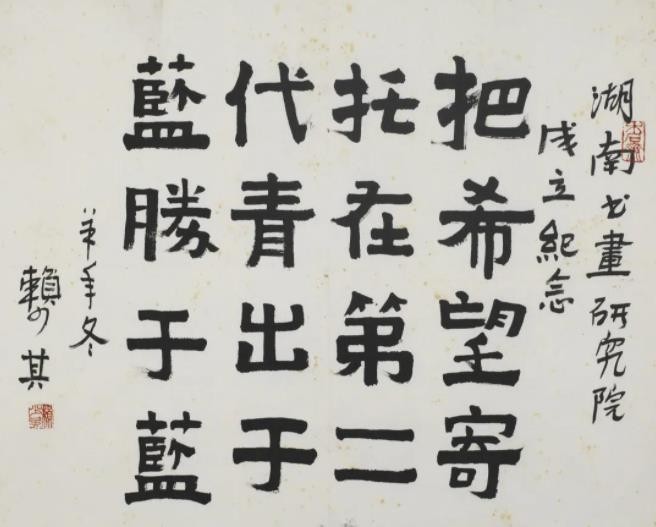 湖南书畫研究院
成立紀念
把希望寄
托在第二
代青出于
藍勝于藍
羊年冬
賴少其